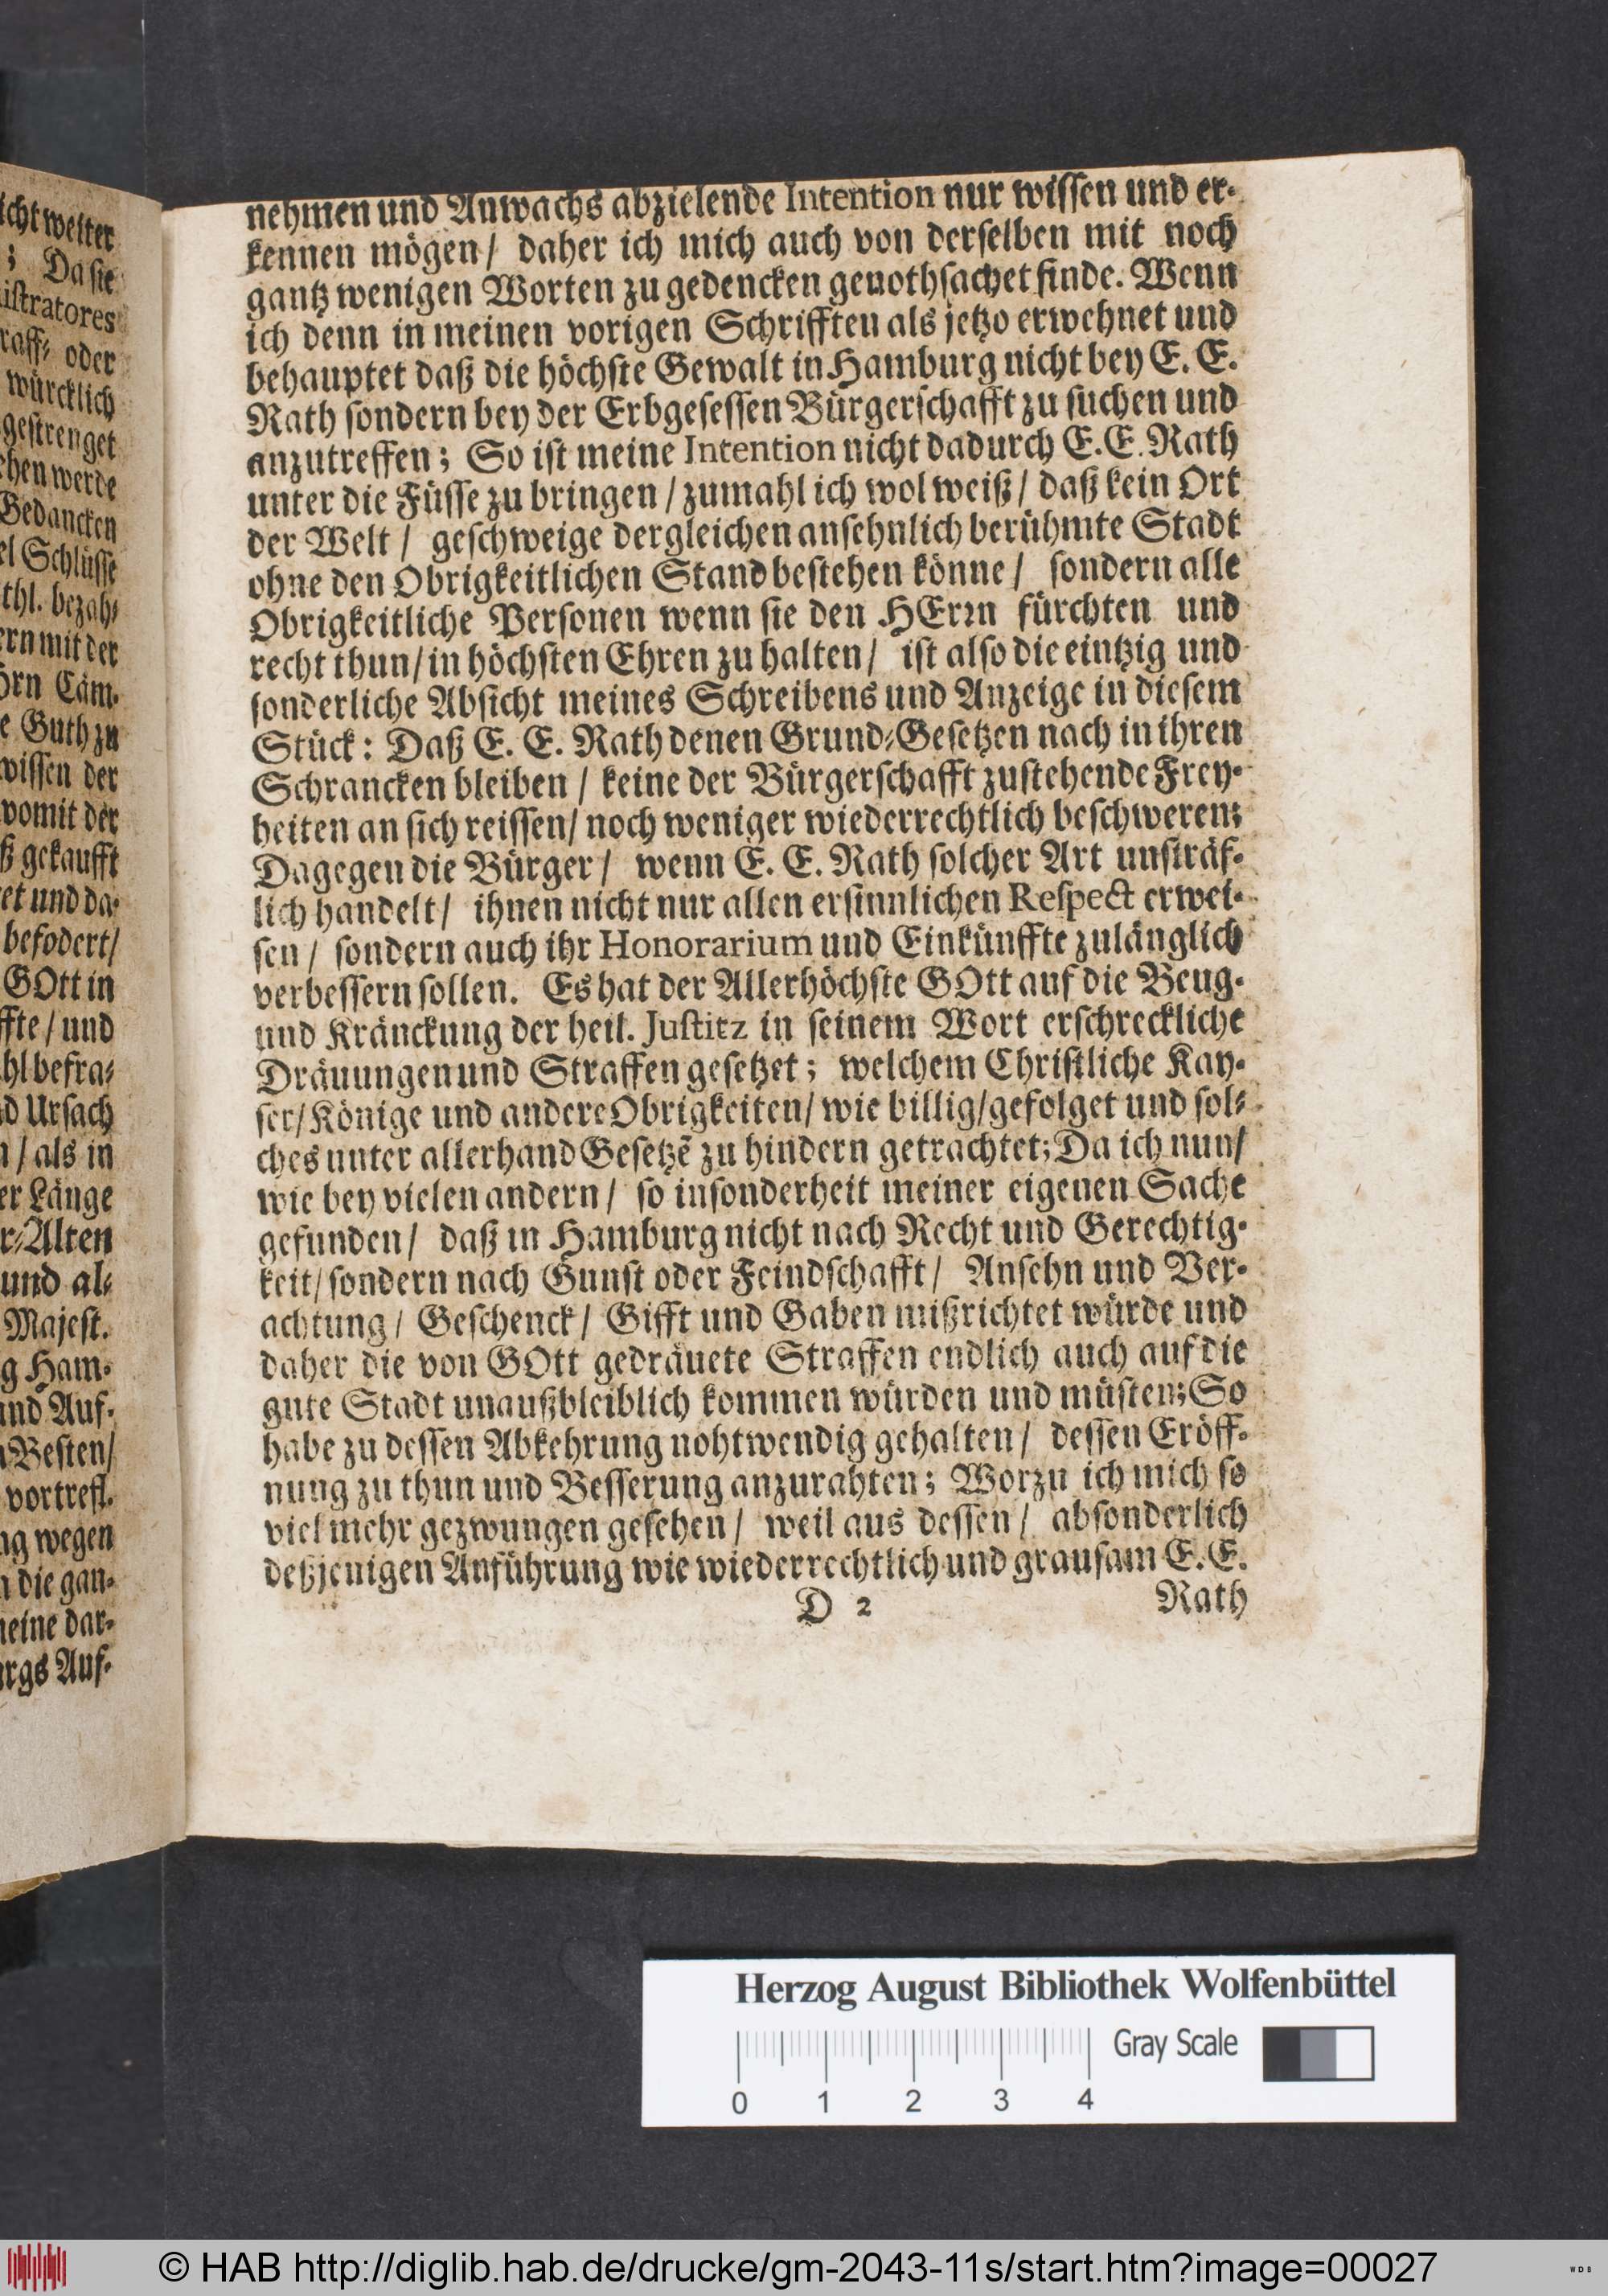 icht weiter
; Da sie
istratores
raff- oder
würcklich
gestrenget
chen werde
Gedancken
el Schlüsse
thl. bezah-
ern mit der
örn Cäm-
e Guth zu
wissen der
womit der
ß gekaufft
et und da-
befodert/
GOtt in
ffte / und
hl befra-
d Ursach
n / als in
er Länge
r-Alten
und al-
Majest.
g Ham-
und Auf-
Besten/
vortrefl.
ng wegen
n die gan-
eine dar-
rgs Auf-
nehmen und Anwachs abzielende Intention nur wissen und er-
kennen mögen / daher ich mich auch von derselben mit noch
gantz wenigen Worten zu gedencken genothsachet finde. Wenn
ich denn in meinen vorigen Schrifften als jetzo erwehnet und
behauptet daß die höchste Gewalt in Hamburg nicht bey E. E.
Rath sondern bey der Erbgesessen Bürgerschafft zu suchen und
anzutreffen; So ist meine Intention nicht dadurch E. E. Rath
unter die Füsse zu bringen / zumahl ich wol weiß / daß kein Ort
der Welt / geschweige dergleichen ansehnlich berühmte Stadt
ohne den Obrigkeitlichen Stand bestehen könne / sondern alle
Obrigkeitliche Personen wenn sie den HErrn fürchten und
recht thun / in höchsten Ehren zu halten / ist also die eintzig und
sonderliche Absicht meines Schreibens und Anzeige in diesem
Stück: Daß E. E. Rath denen Grund-Gesetzen nach in ihren
Schrancken bleiben / keine der Bürgerschafft zustehende Frey-
heiten an sich reissen / noch weniger wiederrechtlich beschweren;
Dagegen die Bürger / wenn E. E. Rath solcher Art unsträf-
lich handelt / ihnen nicht nur allen ersinnlichen Respect erwei-
sen / sondern auch ihr Honorarium und Einkünffte zulänglich
verbessern sollen. Es hat der Allerhöchste GOtt auf die Beug-
und Kränckung der heil. Justitz in seinem Wort erschreckliche
Dräuungen und Straffen gesetzet; welchem Christliche Kay-
ser / Könige und andere Obrigkeiten / wie billig / gefolget und sol-
ches unter allerhand Gesetzē zu hindern getrachtet; Da ich nun /
wie bey vielen andern / so insonderheit meiner eigenen Sache
gefunden / daß in Hamburg nicht nach Recht und Gerechtig-
keit / sondern nach Gunst oder Feindschafft / Ansehn und Ver-
achtung / Geschenck / Gifft und Gaben mißrichtet würde und
daher die von GOtt gedräuete Straffen endlich auch auf die
gute Stadt unaußbleiblich kommen würden und müsten; So
habe zu dessen Abkehrung nohtwendig gehalten / dessen Eröff-
nung zu thun und Besserung anzurahten; Worzu ich mich so
viel mehr gezwungen gesehen / weil aus dessen / absonderlich
deßjenigen Anführung wie wiederrechtlich und grausam E. E.
D 2 Rath
Herzog August Bibliothek Wolfenbüttel
Gray Scale
0 1 2 3 4
© HAB http://diglib.hab.de/drucke/gm-2043-11s/start.htm?image=00027
WDB